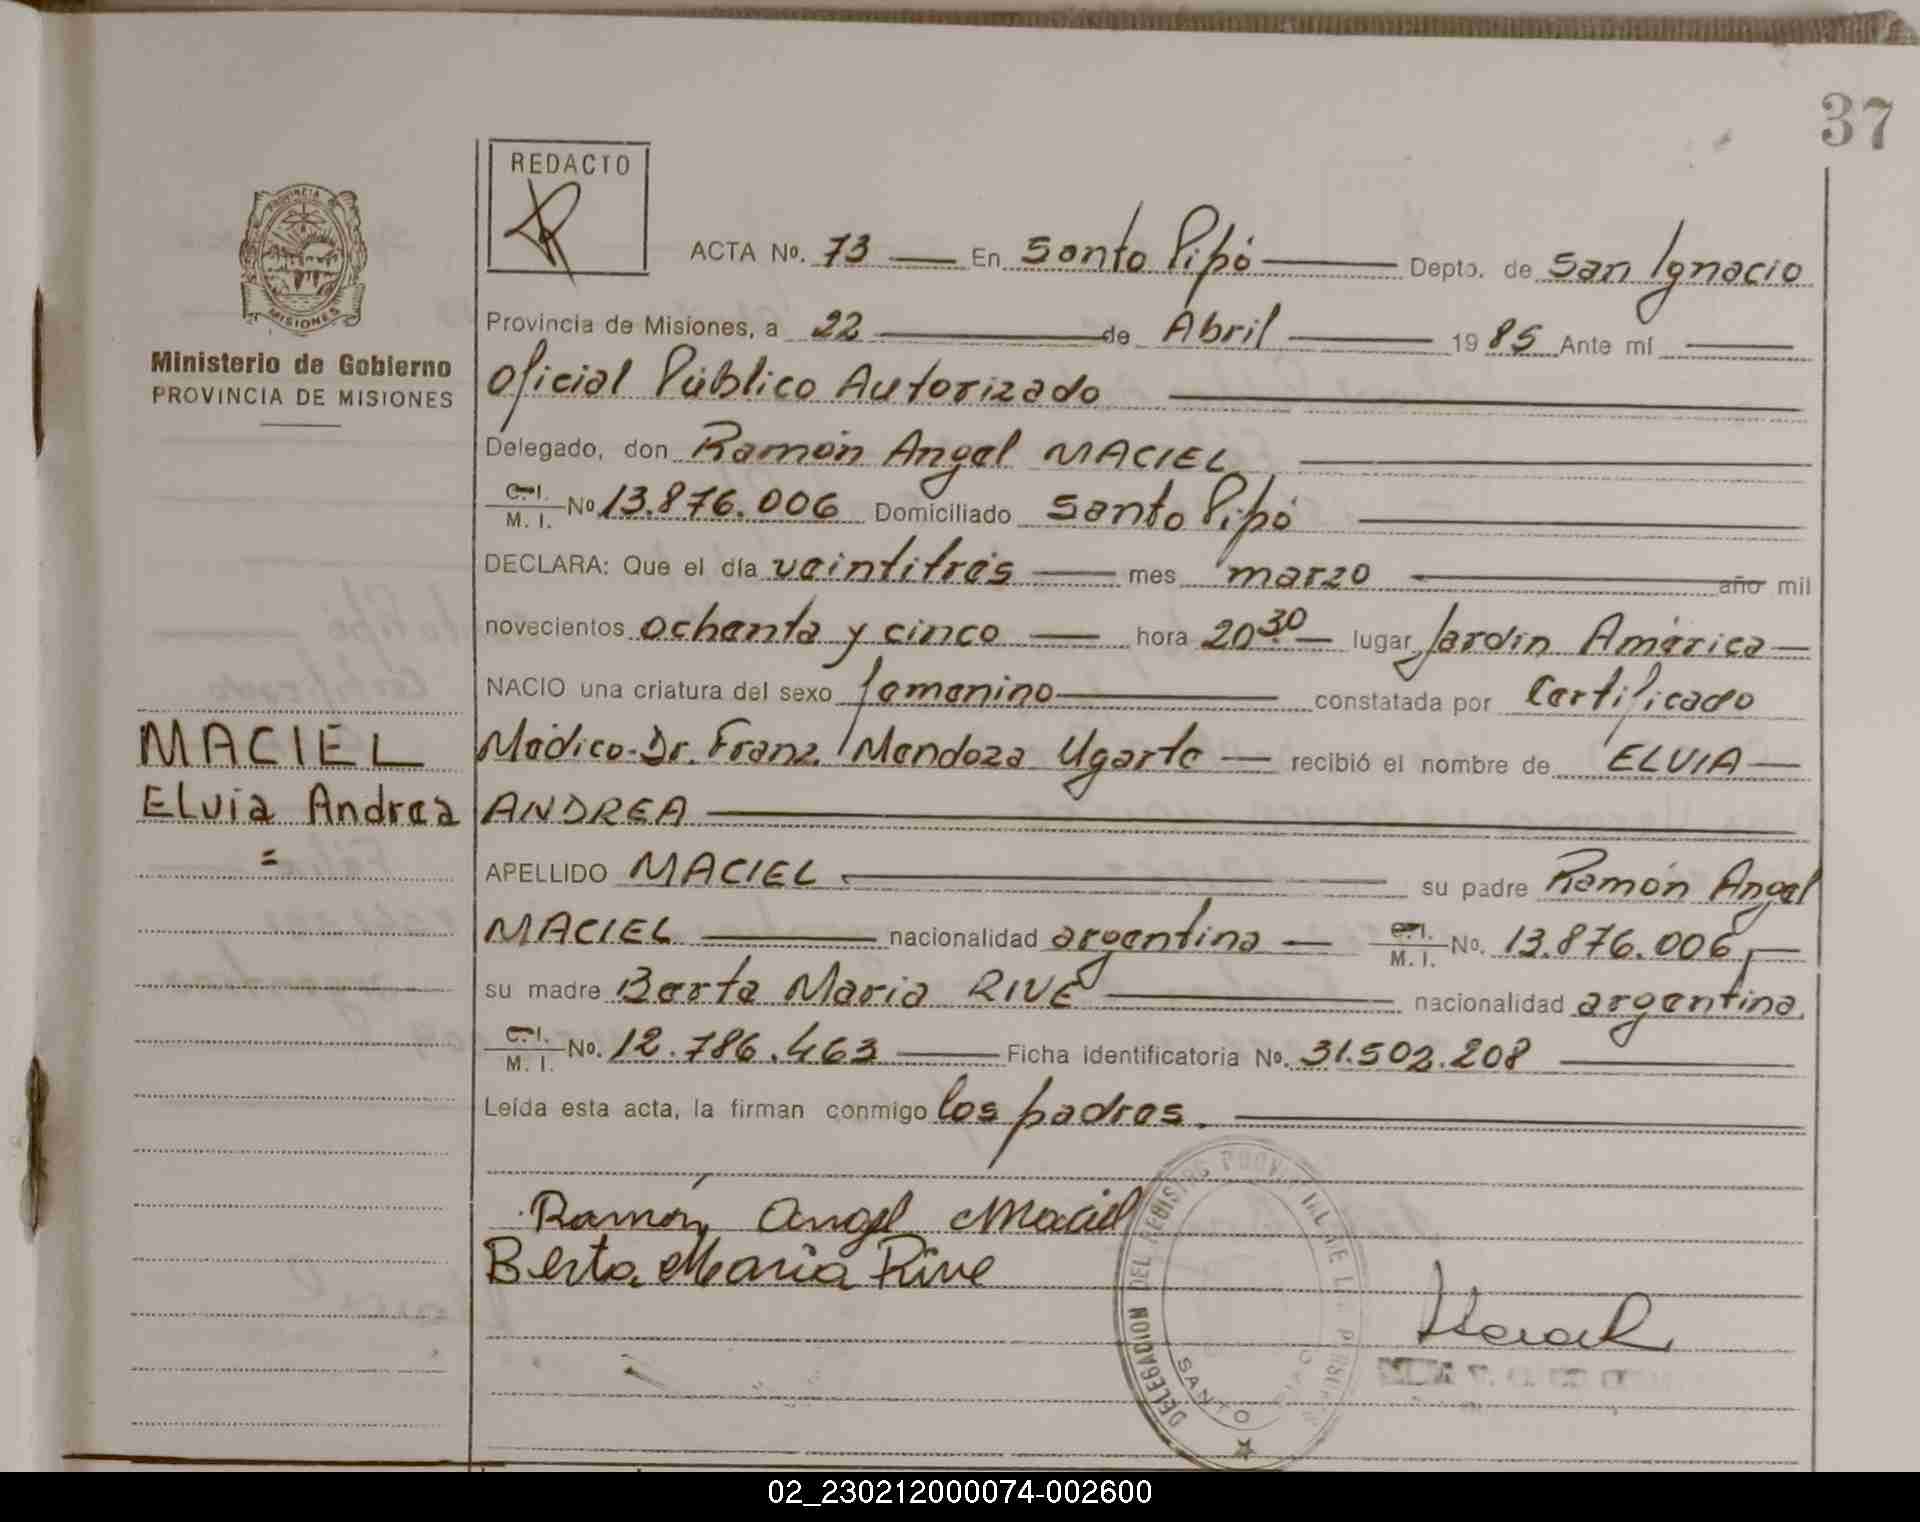 37
REDACTO
PROVINCIA DE
MISIONES
Ministerio de Gobierno
PROVINCIA DE MISIONES
ACTA No. 73 En Santo Pipó Depto. de San Ignacio
Provincia de Misiones, a 22 de Abril 1985 Ante mí
Oficial Público Autorizado
Delegado, don Ramón Angel MACIEL
C.I. M. I. No 13.876.006 Domiciliado Santo Pipó
DECLARA: Que el día veintitrés mes marzo año mil
novecientos ochenta y cinco hora 20 30 lugar Jardín América
NACIO una criatura del sexo femenino constatada por Certificado
Médico-Dr. Franz Mendoza Ugarte recibió el nombre de ELVIA
ANDREA
MACIEL
Elvia Andrea
=
APELLIDO MACIEL su padre Ramón Angel
MACIEL nacionalidad argentina C.I. M. I. No. 13.876.006,
su madre Berta María RIVE nacionalidad argentina,
C.I. M. I. No. 12.786.463 Ficha identificatoria No. 31.502.208
Leída esta acta, la firman conmigo los padres.
Ramón Angel Maciel
Berta Maria Rive
DELEGACION DEL REGISTRO PROVINCIAL DE LAS PERSONAS
SANTO PIPO
02_230212000074-002600